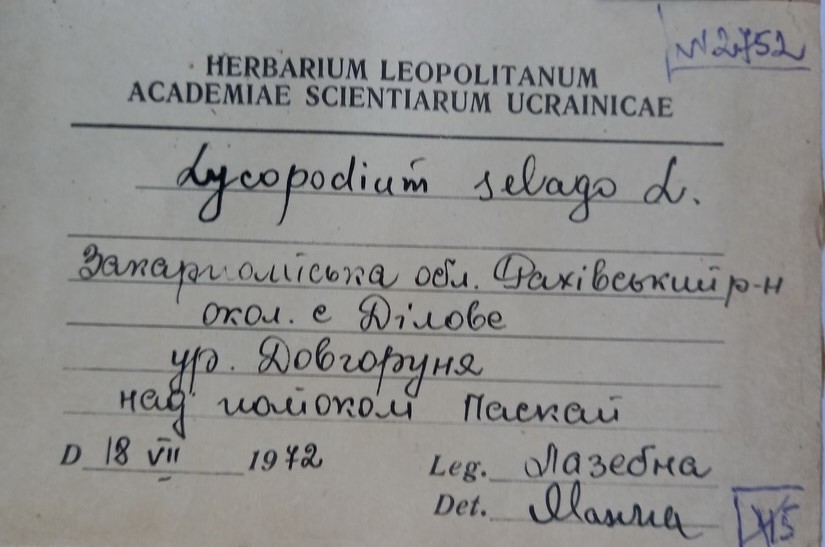 № 2752
HERBARIUM LEOPOLITANUM
ACADEMIAE SCIENTIARUM UCRAINICAE
Lycopodium selago L.
Закарпатська обл. Рахівський р-н
окол. с Ділове
ур. Довгоруня
над потоком Паскай
D 18 VII 1972
Leg. Лазебна
Det.